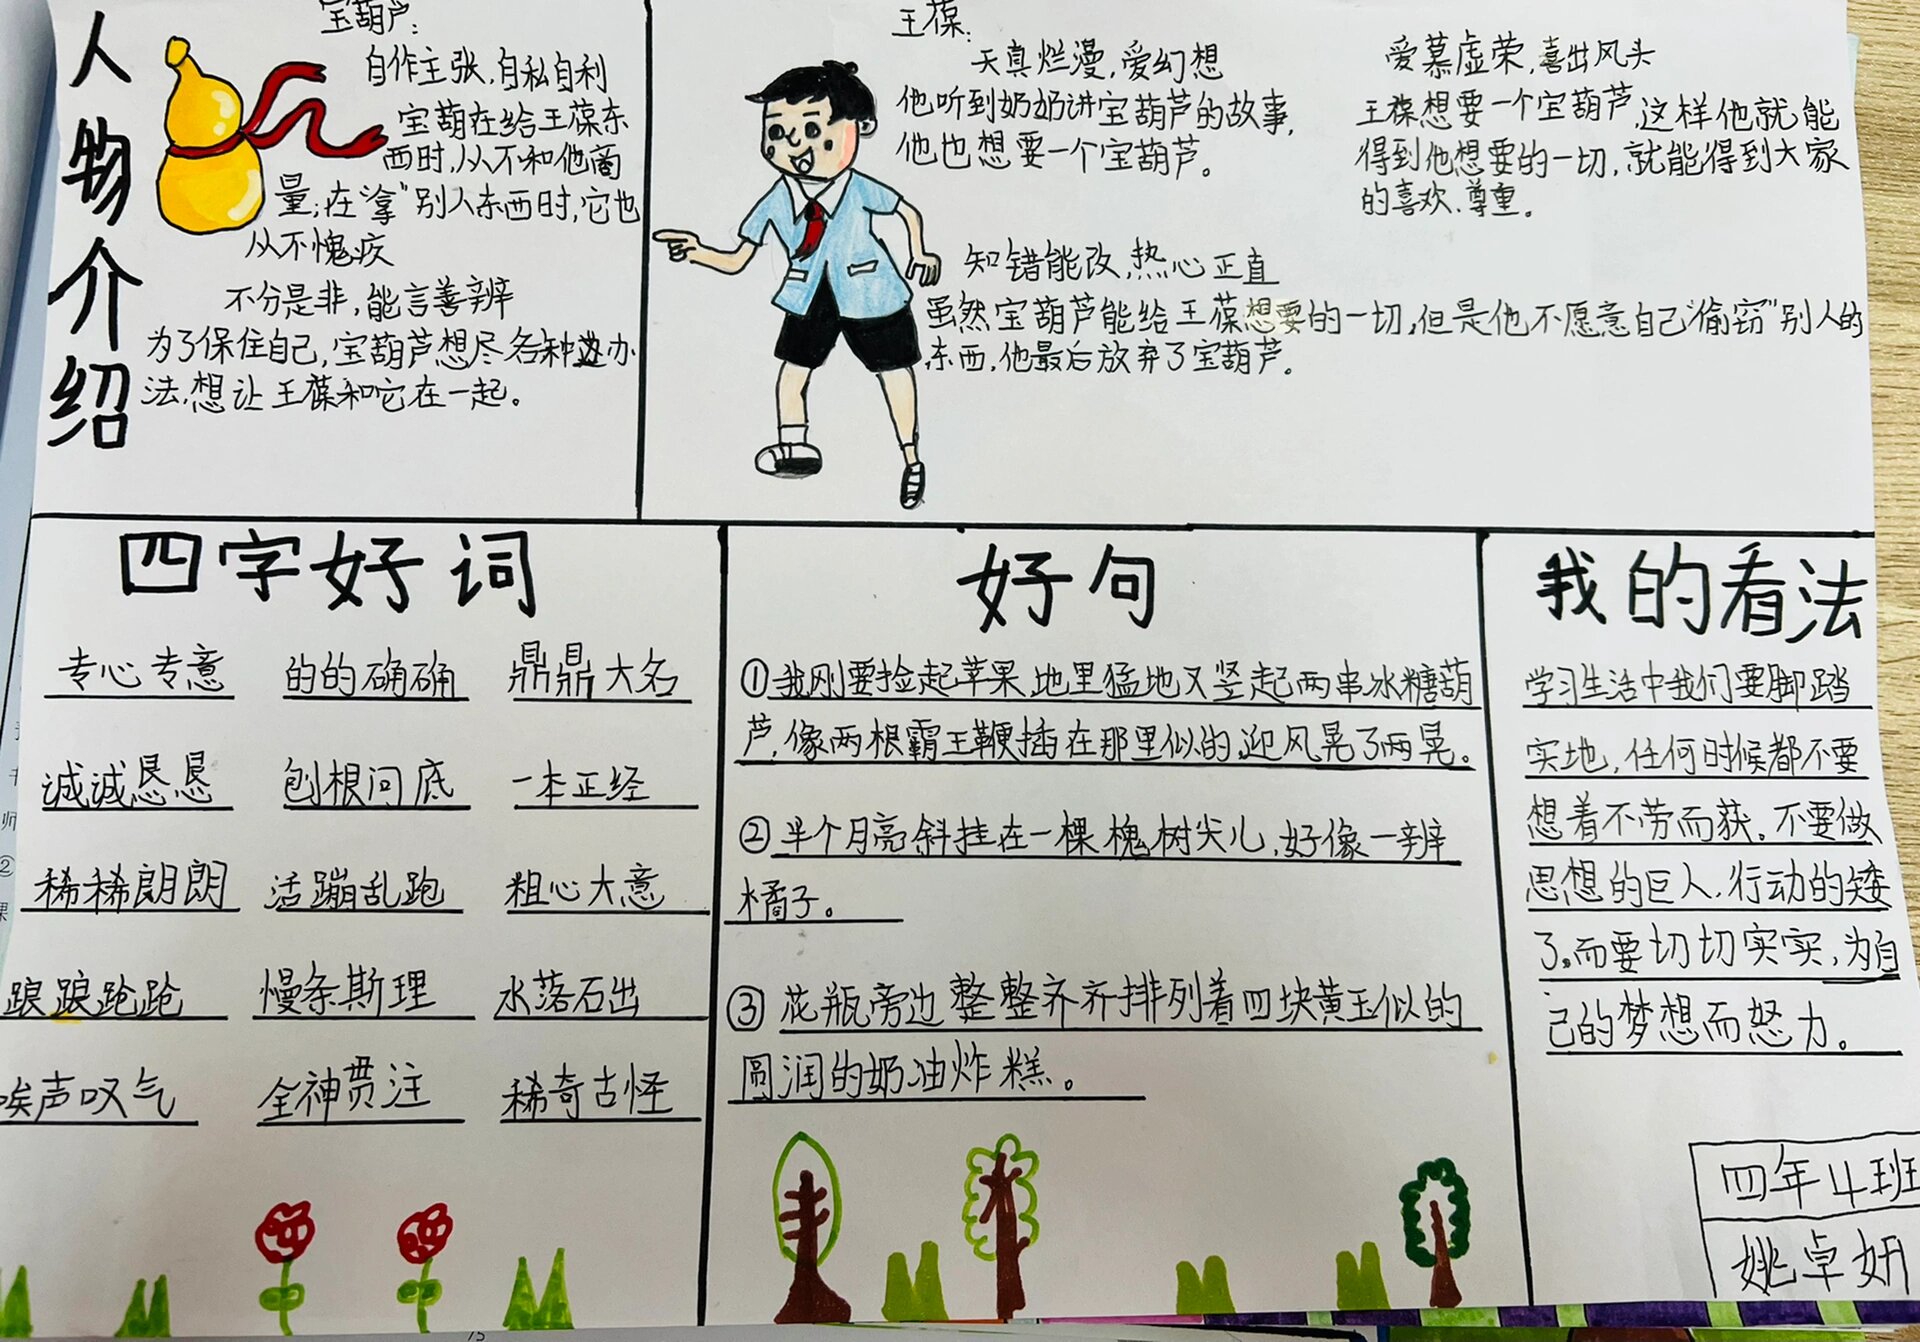 人物介绍
宝葫芦:
自作主张,自私自利
宝葫在给王葆东
西时,从不和他商
量;在“拿”别人东西时,它也
从不愧疚
不分是非,能言善辨
为了保住自己,宝葫芦想尽各种办
法,想让王葆和它在一起。
王葆:
天真烂漫,爱幻想
他听到奶奶讲宝葫芦的故事,
他也想要一个宝葫芦。
爱慕虚荣,喜出风头
王葆想要一个宝葫芦,这样他就能
得到他想要的一切,就能得到大家
的喜欢、尊重。
知错能改,热心正直
虽然宝葫芦能给王葆想要的一切,但是他不愿意自己“偷窃”别人的
东西,他最后放弃了宝葫芦。
四字好词
专心专意 的的确确 鼎鼎大名
诚诚恳恳 刨根问底 一本正经
稀稀朗朗 活蹦乱跑 粗心大意
踉踉跄跄 慢条斯理 水落石出
唉声叹气 全神贯注 稀奇古怪
好句
①我刚要捡起苹果,地里猛地又竖起两串冰糖葫
芦,像两根霸王鞭插在那里似的,迎风晃了两晃。
②半个月亮斜挂在一棵槐树尖儿,好像一辨
橘子。
③花瓶旁边整整齐齐排列着四块黄玉似的
圆润的奶油炸糕。
我的看法
学习生活中我们要脚踏
实地,任何时候都不要
想着不劳而获。不要做
思想的巨人,行动的矮
了,而要切切实实,为自
己的梦想而努力。
四年4班
姚卓妍